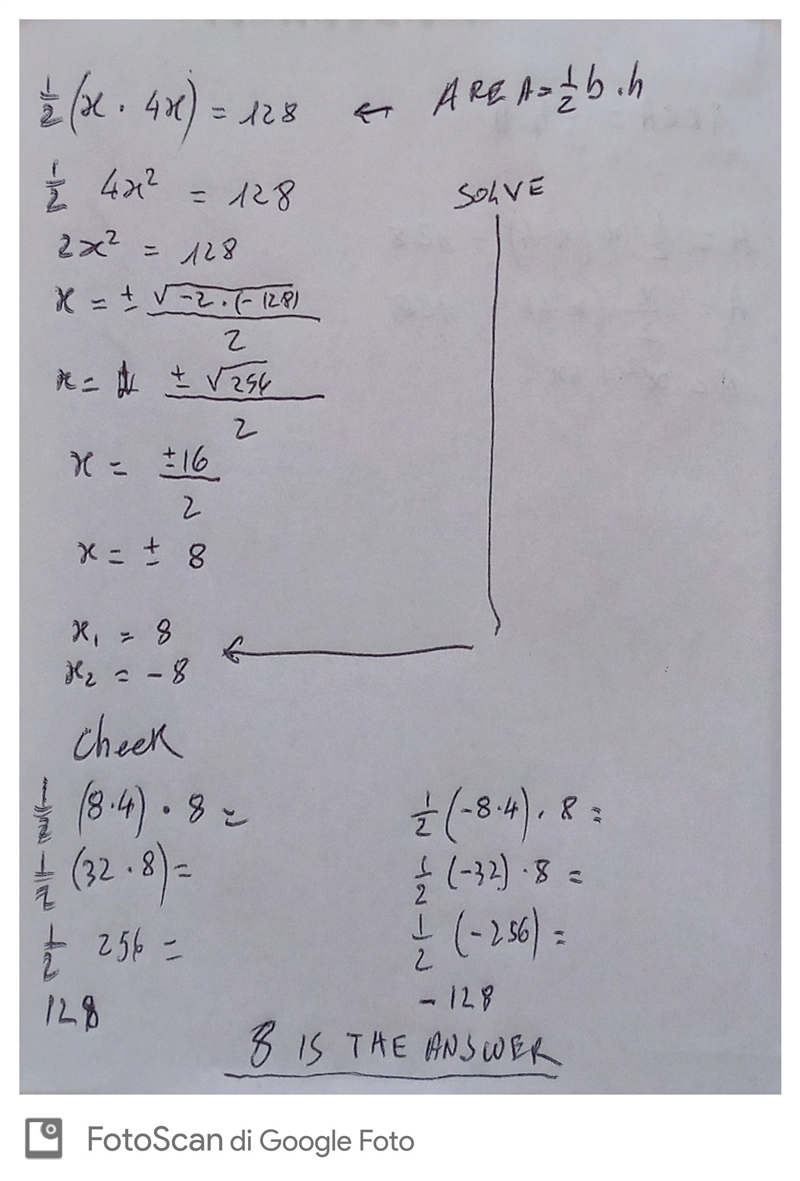 ½(x · 4x) = 128 ← AREA = ½ b · h
½ 4x² = 128
SOLVE
2x² = 128
x = ± √-2 · (-128) / 2
x = ± √256 / 2
x = ±16 / 2
x = ± 8
x₁ = 8
x₂ = -8
Check
½ (8·4) · 8 =
½ (32 · 8) =
½ 256 =
128
½ (-8·4) · 8 =
½ (-32) · 8 =
½ (-256) =
- 128
8 IS THE ANSWER
FotoScan di Google Foto